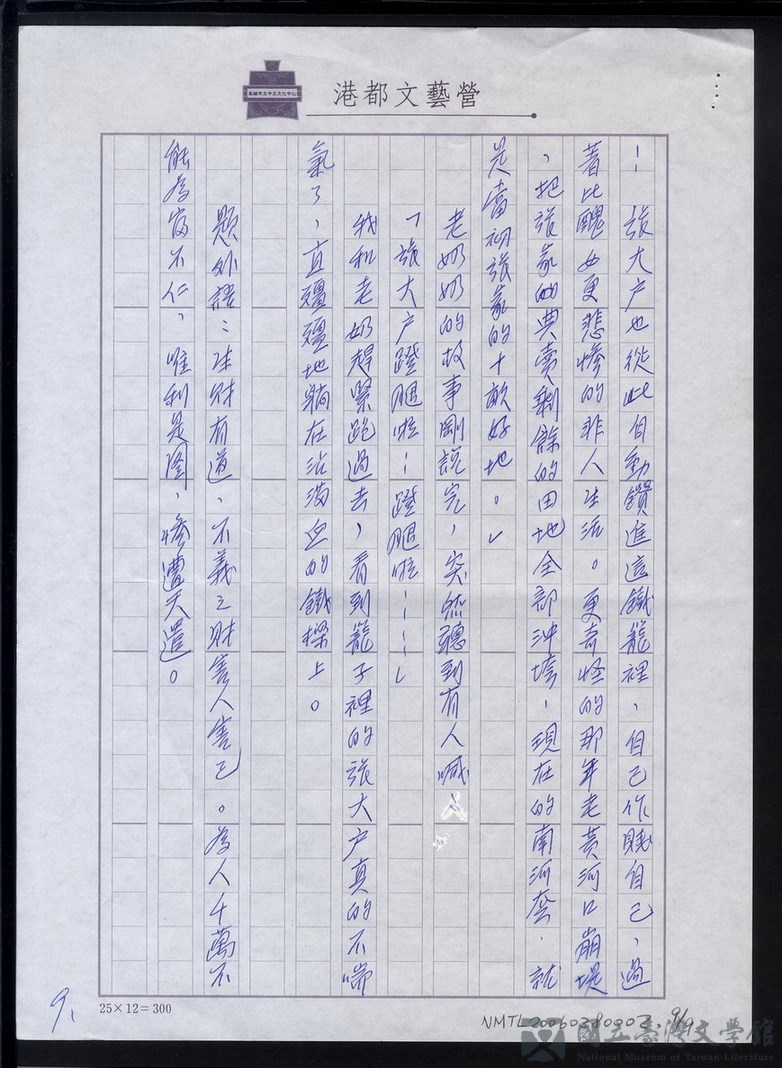 港都文藝營
高雄市立中正文化中心
！　張大户也從此自動鑽進這鐵籠裡，自己作賤自己，過
著比醜女更悲慘的非人生活。更奇怪的那年老黃河口崩堤
，把張家典賣剩餘的田地全部沖垮，現在的南河套，就
是當初張家的十畝好地。」
老奶奶的故事剛說完，突然聽到有人喊
「張大户蹬腿啦！蹬腿啦！！！」
我和老奶趕緊跑過去，看到籠子裡的張大户真的不喘
氣了，直殭殭地躺在沾滿血的鐵檈上。
題外語：生財有道，不義之財害人害己。為人千萬不
能為富不仁，唯利是圖，慘遭天遣。
25×12＝300
9、
NMTL20060280002 9/9
國立臺灣文學館
National Museum of Taiwan Literature